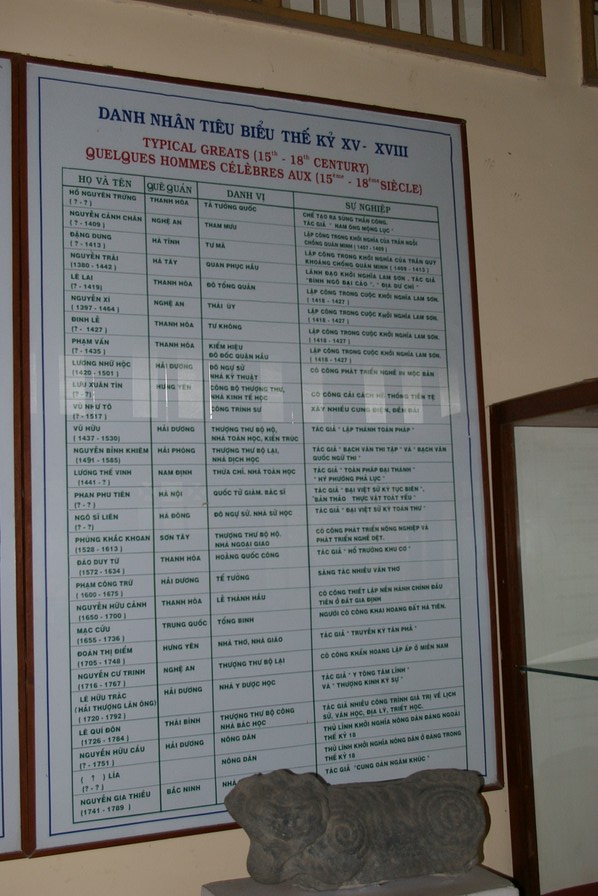 DANH NHÂN TIÊU BIỂU THẾ KỶ XV- XVIII
TYPICAL GREATS (15th - 18th CENTURY)
QUELQUES HOMMES CÉLÈBRES AUX (15ème - 18ème SIÈCLE)
HỌ VÀ TÊN QUÊ QUÁN DANH VỊ SỰ NGHIỆP
HỒ NGUYÊN TRỪNG THANH HÓA TẢ TƯỚNG QUỐC CHẾ TẠO RA SÚNG THẦN CÔNG.
(? - ?) TÁC GIẢ " NAM ÔNG MỘNG LỤC "
NGUYỄN CẢNH CHÂN NGHỆ AN THAM MƯU LẬP CÔNG TRONG KHỞI NGHĨA CỦA TRẦN NGỖI
(? - 1409) CHỐNG QUÂN MINH (1407 - 1409)
ĐẶNG DUNG HÀ TĨNH TƯ MÃ LẬP CÔNG TRONG KHỞI NGHĨA CỦA TRẦN QUÝ
(? - 1413) KHOÁNG CHỐNG QUÂN MINH ( 1409 - 1413 )
NGUYỄN TRÃI HÀ TÂY QUAN PHỤC HẦU LÃNH ĐẠO KHỞI NGHĨA LAM SƠN . TÁC GIẢ
(1380 - 1442) "BÌNH NGÔ ĐẠI CÁO ", " ĐỊA DƯ CHÍ "
LÊ LAI THANH HÓA ĐÔ TỔNG QUẢN LẬP CÔNG TRONG CUỘC KHỞI NGHĨA LAM SƠN.
(? - 1419) ( 1418 - 1427 )
NGUYỄN XÍ NGHỆ AN THÁI ÚY LẬP CÔNG TRONG CUỘC KHỞI NGHĨA LAM SƠN.
(1397 - 1464) ( 1418 - 1427 )
ĐINH LỄ THANH HÓA TƯ KHÔNG LẬP CÔNG TRONG CUỘC KHỞI NGHĨA LAM SƠN.
(? - 1427) ( 1418 - 1427 )
PHẠM VẤN THANH HÓA KIỂM HIỆU LẬP CÔNG TRONG CUỘC KHỞI NGHĨA LAM SƠN.
(? - 1435) ĐÔ ĐỐC QUẬN HẦU ( 1418 - 1427 )
LƯƠNG NHỮ HỘC HẢI DƯƠNG ĐÔ NGỰ SỬ CÓ CÔNG PHÁT TRIỂN NGHỀ IN MỘC BẢN
(1420 - 1501) NHÀ KỸ THUẬT
LƯU XUÂN TÍN HƯNG YÊN CÔNG BỘ THƯỢNG THƯ, CÓ CÔNG CẢI CÁCH HỆ THỐNG TIỀN TỆ
(? - ?) NHÀ KINH TẾ HỌC
VŨ NHƯ TÔ CÔNG TRÌNH SƯ XÂY NHIỀU CUNG ĐIỆN, ĐỀN ĐÀI
(? - 1517)
VŨ HỮU HẢI DƯƠNG THƯỢNG THƯ BỘ HỘ, TÁC GIẢ " LẬP THÀNH TOÁN PHÁP "
( 1437 - 1530) NHÀ TOÁN HỌC, KIẾN TRÚC
NGUYỄN BỈNH KHIÊM HẢI PHÒNG THƯỢNG THƯ BỘ LẠI, TÁC GIẢ " BẠCH VÂN THI TẬP " VÀ " BẠCH VÂN
(1491 - 1585) NHÀ DỊCH HỌC QUỐC NGỮ THI "
LƯƠNG THẾ VINH NAM ĐỊNH THỪA CHỈ. NHÀ TOÁN HỌC TÁC GIẢ " TOÁN PHÁP ĐẠI THÀNH "
(1441 - ? ) " HÝ PHƯỜNG PHẢ LỤC "
PHAN PHU TIÊN HÀ NỘI QUỐC TỬ GIÁM. BÁC SĨ TÁC GIẢ " ĐẠI VIỆT SỬ KÝ TỤC BIÊN ",
(? - ?) "BẢN THẢO THỰC VẬT TOÁT YẾU "
NGÔ SĨ LIÊN HÀ ĐÔNG ĐÔ NGỰ SỬ. NHÀ SỬ HỌC TÁC GIẢ " ĐẠI VIỆT SỬ KÝ TOÀN THƯ "
(? - ?)
PHÙNG KHẮC KHOAN SƠN TÂY THƯỢNG THƯ BỘ HỘ. CÓ CÔNG PHÁT TRIỂN NÔNG NGHIỆP VÀ
(1528 - 1613 ) NHÀ NGOẠI GIAO PHÁT TRIỂN NGHỀ DỆT.
ĐÀO DUY TỪ THANH HÓA HOẰNG QUỐC CÔNG TÁC GIẢ " HỔ TRƯỚNG KHU CƠ "
(1572 - 1634 )
PHẠM CÔNG TRỨ HẢI DƯƠNG TỂ TƯỚNG SÁNG TÁC NHIỀU VĂN THƠ
( 1600 - 1675)
NGUYỄN HỮU CẢNH THANH HÓA LỄ THÀNH HẦU CÓ CÔNG THIẾT LẬP NỀN HÀNH CHÍNH ĐẦU
(1650 - 1700) TIÊN Ở ĐẤT GIA ĐỊNH
MẠC CỬU TRUNG QUỐC TỔNG BINH NGƯỜI CÓ CÔNG KHAI HOANG ĐẤT HÀ TIÊN.
(1655 - 1736 )
ĐOÀN THỊ ĐIỂM HƯNG YÊN NHÀ THƠ, NHÀ GIÁO TÁC GIẢ " TRUYỀN KỲ TÂN PHẢ "
(1705 - 1748 )
NGUYỄN CƯ TRINH NGHỆ AN THƯỢNG THƯ BỘ LẠI CÓ CÔNG KHẨN HOANG LẬP ẤP Ở MIỀN NAM
(1716 - 1767 )
LÊ HỮU TRÁC HẢI DƯƠNG NHÀ Y DƯỢC HỌC TÁC GIẢ " Y TÔNG TÂM LĨNH "
(HẢI THƯỢNG LÃN ÔNG) VÀ " THƯỢNG KINH KÝ SỰ "
( 1720 - 1792)
LÊ QUÍ ĐÔN THÁI BÌNH THƯỢNG THƯ BỘ CÔNG TÁC GIẢ NHIỀU CÔNG TRÌNH GIÁ TRỊ VỀ LỊCH
(1726 - 1784) NHÀ BÁC HỌC SỬ, VĂN HỌC, ĐỊA LÝ, TRIẾT HỌC.
NGUYỄN HỮU CẦU HẢI DƯƠNG NÔNG DÂN THỦ LĨNH KHỞI NGHĨA NÔNG DÂN ĐÀNG NGOÀI
(? - 1751 ) THẾ KỶ 18
( ? ) LÍA NÔNG DÂN THỦ LĨNH KHỞI NGHĨA NÔNG DÂN Ở ĐÀNG TRONG
(? - ?) THẾ KỶ 18
NGUYỄN GIA THIỀU BẮC NINH NHÀ TÁC GIẢ "CUNG OÁN NGÂM KHÚC "
(1741 - 1789 )